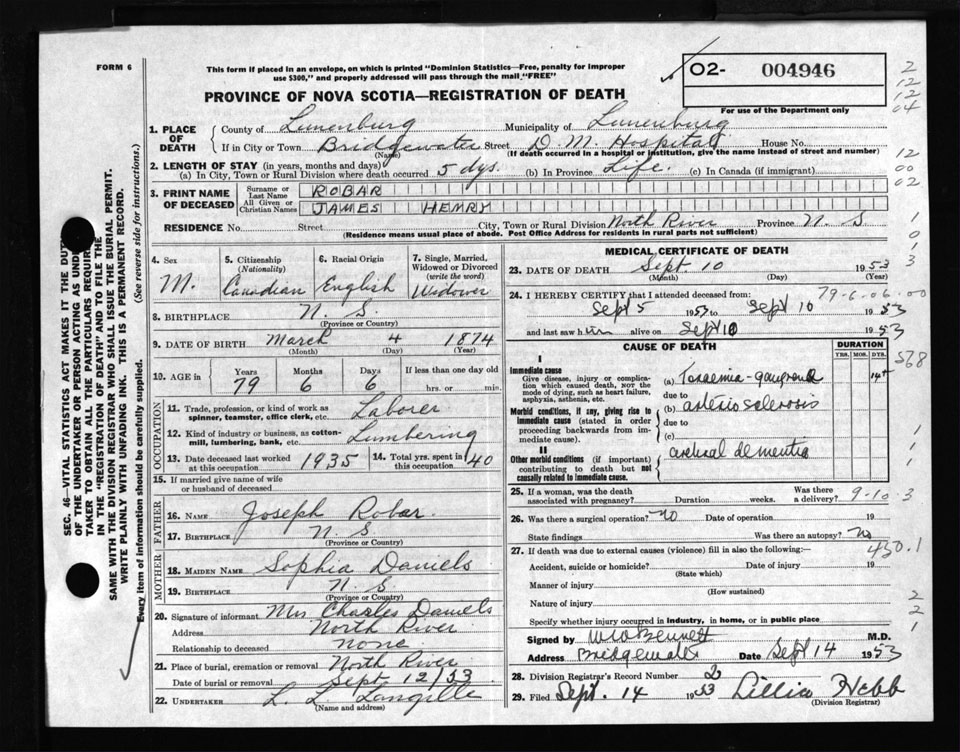 FORM 6
This form if placed in an envelope, on which is printed "Dominion Statistics—Free, penalty for improper
use $300," and properly addressed will pass through the mail "FREE"
PROVINCE OF NOVA SCOTIA—REGISTRATION OF DEATH
02- 004946
For use of the Department only
2
12
12
04
12
00
02
1
0
3
1. PLACE OF DEATH
County of Lunenburg Municipality of Lunenburg
If in City or Town Bridgewater Street D. M. Hospital House No.
(Name) (If death occurred in a hospital or institution, give the name instead of street and number)
2. LENGTH OF STAY (in years, months and days)
(a) In City, Town or Rural Division where death occurred 5 dys. (b) In Province Life. (c) In Canada (if immigrant)
3. PRINT NAME OF DECEASED
Surname or Last Name ROBAR
All Given or Christian Names JAMES HENRY
RESIDENCE No. Street City, Town or Rural Division North River Province N. S
(Residence means usual place of abode. Post Office Address for residents in rural parts not sufficient)
4. Sex M.
5. Citizenship (Nationality) Canadian
6. Racial Origin English
7. Single, Married, Widowed or Divorced (write the word) Widower
8. BIRTHPLACE N. S.
(Province or Country)
9. DATE OF BIRTH March 4 1874
(Month) (Day) (Year)
10. AGE in Years 79 Months 6 Days 6 If less than one day old hrs. or min.
OCCUPATION
11. Trade, profession, or kind of work as spinner, teamster, office clerk, etc. Laborer
12. Kind of industry or business, as cotton-mill, lumbering, bank, etc. Lumbering
13. Date deceased last worked at this occupation 1935
14. Total yrs. spent in this occupation 40
15. If married give name of wife or husband of deceased
FATHER
16. NAME Joseph Robar
17. BIRTHPLACE N. S
(Province or Country)
MOTHER
18. MAIDEN NAME Sophia Daniels
19. BIRTHPLACE N. S
(Province or Country)
20. Signature of informant Mrs Charles Daniels
Address North River
Relationship to deceased none
21. Place of burial, cremation or removal North River
Date of burial or removal Sept. 12/53
22. UNDERTAKER L. L. Langille
(Name and address)
MEDICAL CERTIFICATE OF DEATH
23. DATE OF DEATH Sept. 10 1953
(Month) (Day) (Year)
24. I HEREBY CERTIFY that I attended deceased from: 79-6-06-00
Sept 5 1953 to Sept 10 1953
and last saw him alive on Sept 10 1953
CAUSE OF DEATH
DURATION
YRS. MOS. DYS.
568
I
Immediate cause
Give disease, injury or complication which caused death, not the mode of dying, such as heart failure, asphyxia, asthenia, etc.
(a) Toxaemia - gangrene 14+
due to
Morbid conditions, if any, giving rise to immediate cause (stated in order proceeding backwards from immediate cause).
(b) arterio sclerosis
due to
(c)
II
Other morbid conditions (if important) contributing to death but not causally related to immediate cause.
cerebral dementia
1
1
1
25. If a woman, was the death associated with pregnancy? Duration weeks. Was there a delivery? 9-10-3
26. Was there a surgical operation? no Date of operation 19
State findings Was there an autopsy? no
450.1
27. If death was due to external causes (violence) fill in also the following:—
Accident, suicide or homicide? Date of injury 19
(State which)
Manner of injury
(How sustained)
Nature of injury
Specify whether injury occurred in industry, in home, or in public place
2
2
1
Signed by W W Bennett M.D.
Address Bridgewater Date Sept 14 1953
28. Division Registrar's Record Number 2
29. Filed Sept. 14 1953 Lillia Hebb
(Division Registrar)
SEC. 46—VITAL STATISTICS ACT MAKES IT THE DUTY
OF THE UNDERTAKER OR PERSON ACTING AS UNDER
TAKER TO OBTAIN ALL THE PARTICULARS REQUIR
IN THE "REGISTRATION OF DEATH" AND TO FILE THE
SAME WITH THE DIVISION REGISTRAR WHO SHALL ISSUE THE BURIAL PERMIT.
WRITE PLAINLY WITH UNFADING INK. THIS IS A PERMANENT RECORD.
Every item of information should be carefully supplied. (See reverse side for instructions.)